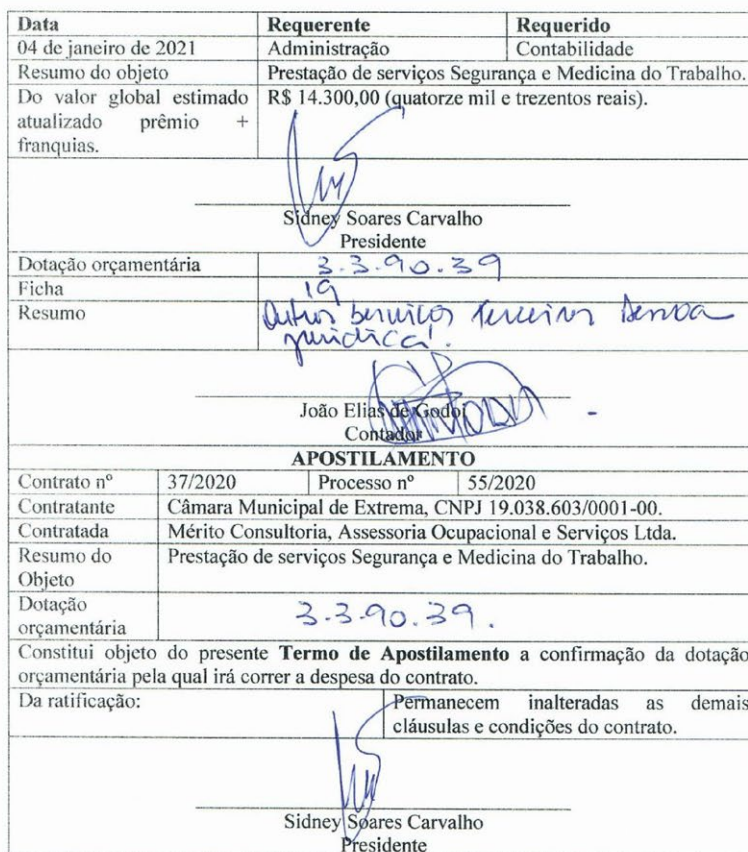 Data Requerente Requerido
04 de janeiro de 2021 Administração Contabilidade
Resumo do objeto Prestação de serviços Segurança e Medicina do Trabalho.
Do valor global estimado R$ 14.300,00 (quatorze mil e trezentos reais).
atualizado prêmio +
franquias.
Sidney Soares Carvalho
Presidente
Dotação orçamentária 3.3.90.39
Ficha 19
Resumo Outros serviços terceiros
jurídica.
João Elias de Godoi
Contador
APOSTILAMENTO
Contrato nº 37/2020 Processo nº 55/2020
Contratante Câmara Municipal de Extrema, CNPJ 19.038.603/0001-00.
Contratada Mérito Consultoria, Assessoria Ocupacional e Serviços Ltda.
Resumo do Prestação de serviços Segurança e Medicina do Trabalho.
Objeto
Dotação
orçamentária 3.3.90.39.
Constitui objeto do presente Termo de Apostilamento a confirmação da dotação
orçamentária pela qual irá correr a despesa do contrato.
Da ratificação: Permanecem inalteradas as demais
cláusulas e condições do contrato.
Sidney Soares Carvalho
Presidente